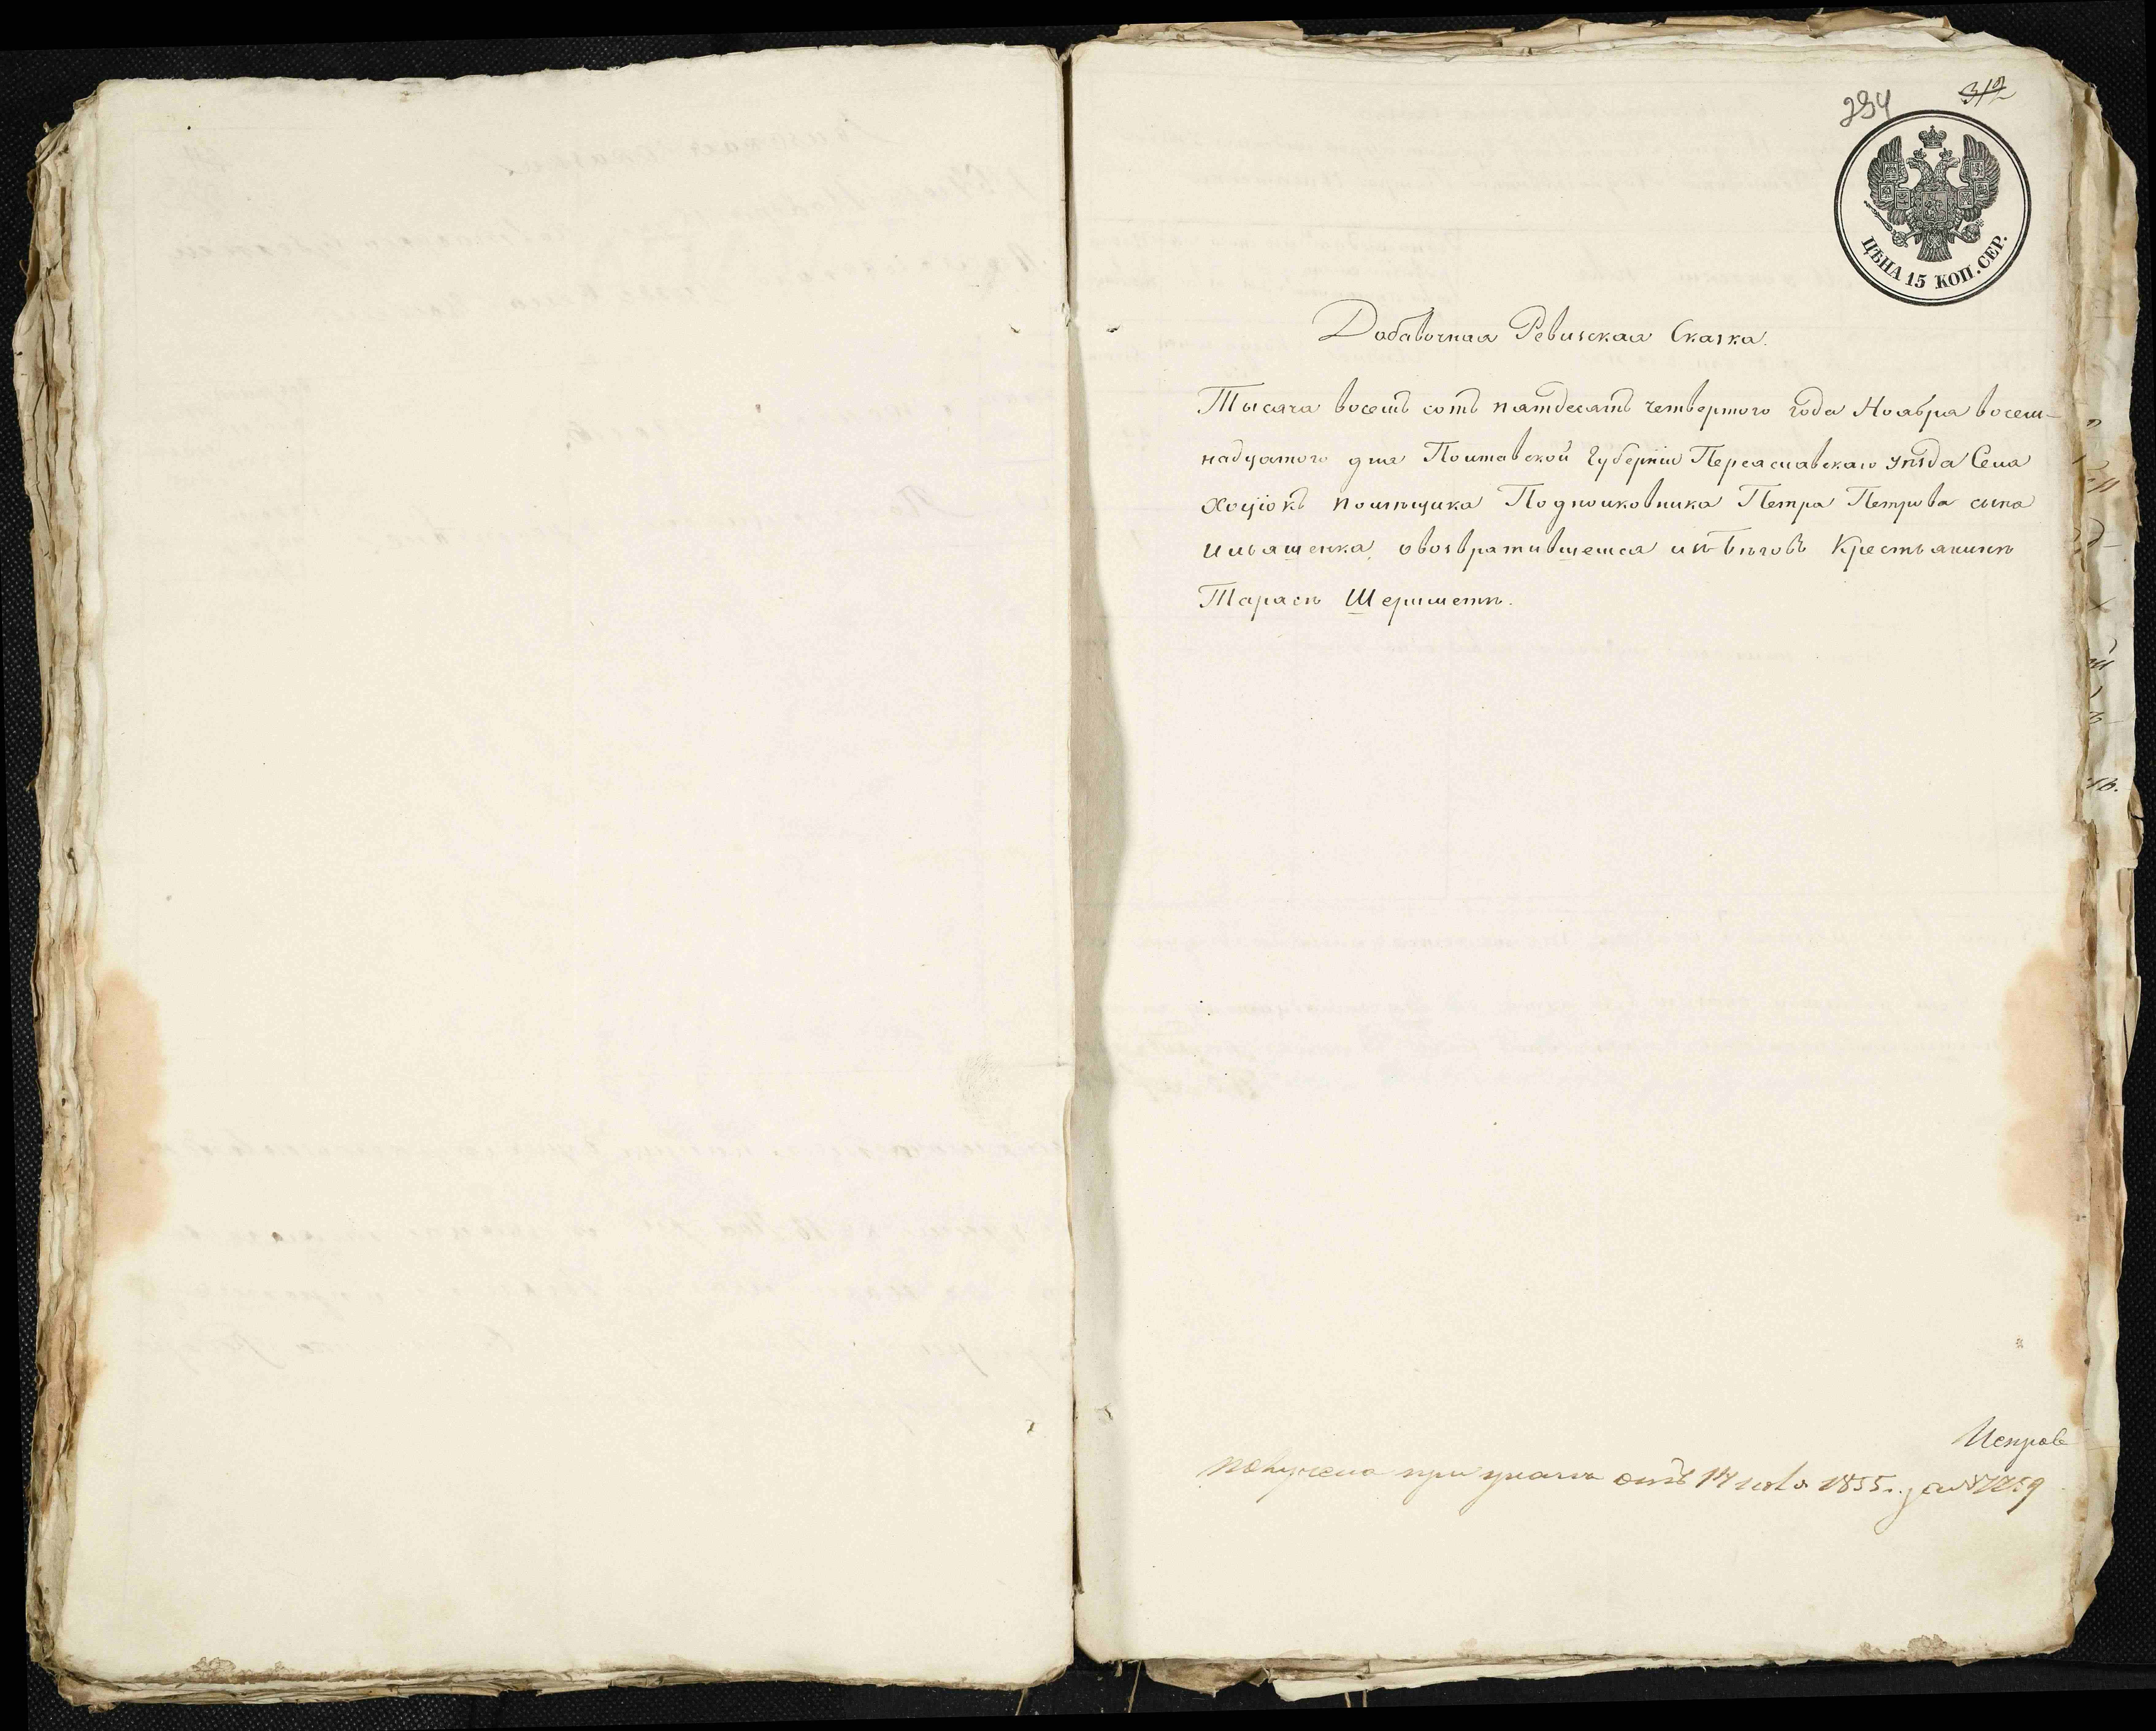 294 312
ЦѢНА 15 КОП. СЕР.
Добавочная Ревизская Сказка.
Тысяча восемъ сотъ пятдесятъ четвертого года Ноября восем-
надцатого дня Полтавской Губернiи Переяславскаго уѣзда Села
Хоцюкъ помѣщика Подполковника Петра Петрова сына
Ильяшенка, овозвратившемся изъ бѣговъ Крестьянинѣ
Тарасѣ Шереметѣ.
Исправ
получена при указѣ отъ 14 1855 г. за №